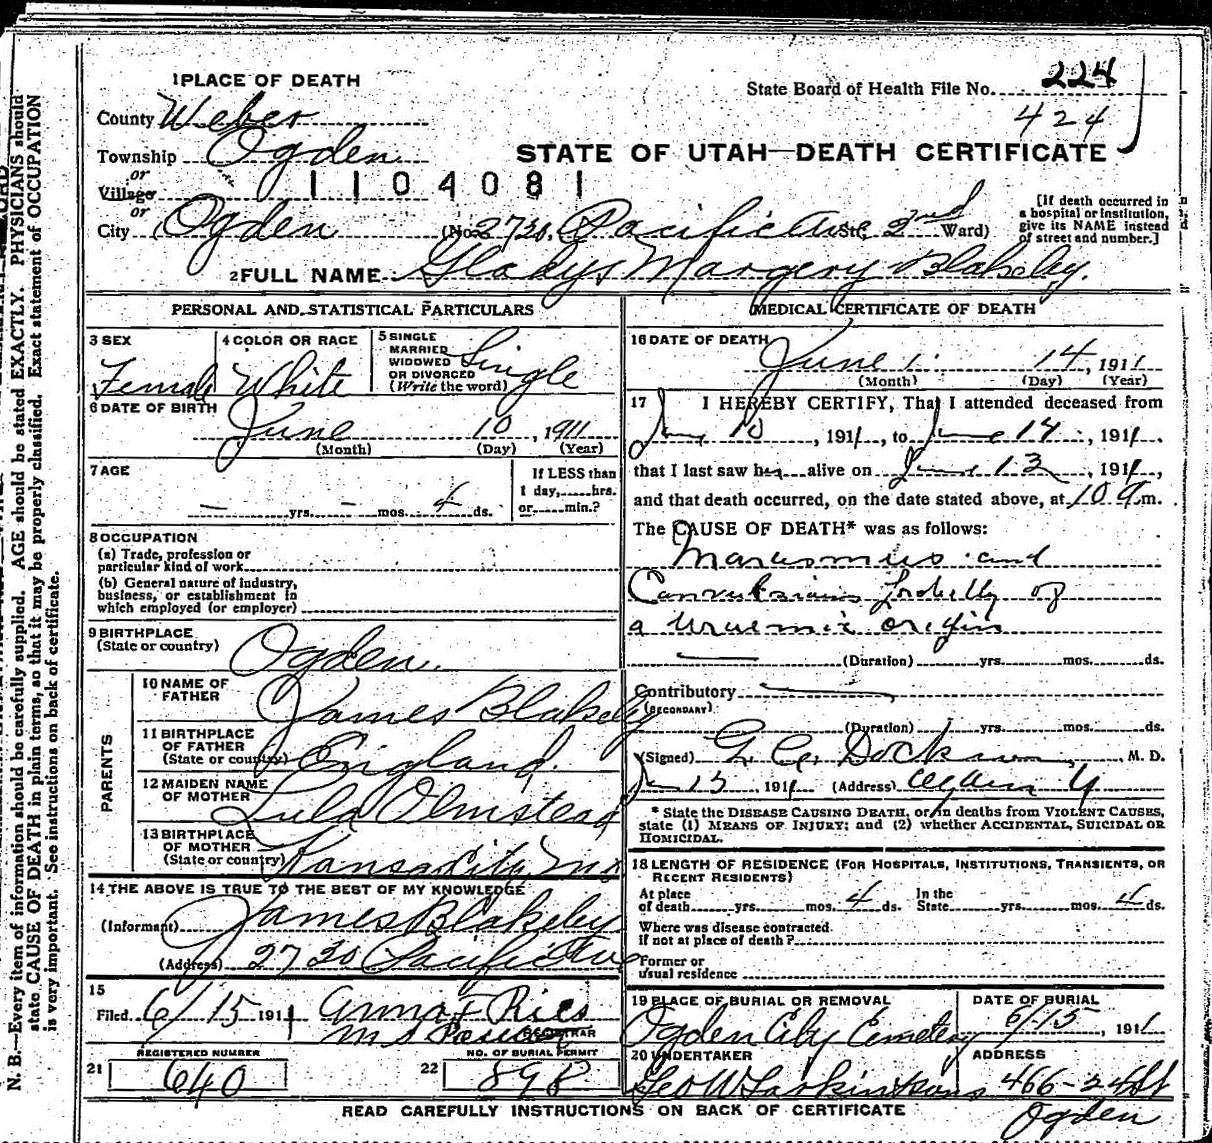 1 PLACE OF DEATH
State Board of Health File No. 224
424
County Weber
Township Ogden
or
Village
or
1104081
STATE OF UTAH—DEATH CERTIFICATE
City Ogden (No. 2730 Pacific Ave St.; 2nd Ward)
[If death occurred in a hospital or institution, give its NAME instead of street and number.]
2 FULL NAME Gladys Margery Blakeley.
PERSONAL AND STATISTICAL PARTICULARS
3 SEX
Female
4 COLOR OR RACE
White
5 SINGLE
MARRIED
WIDOWED
OR DIVORCED
(Write the word)
Single
6 DATE OF BIRTH
June 10, 1911
(Month) (Day) (Year)
7 AGE
— yrs. - mos. 4 ds.
If LESS than
1 day,......hrs.
or......min.?
8 OCCUPATION
(a) Trade, profession or
particular kind of work
(b) General nature of industry,
business, or establishment in
which employed (or employer)
9 BIRTHPLACE
(State or country)
Ogden.
PARENTS
10 NAME OF
FATHER
James Blakeley
11 BIRTHPLACE
OF FATHER
(State or country)
England.
12 MAIDEN NAME
OF MOTHER
Lula Olmstead
13 BIRTHPLACE
OF MOTHER
(State or country)
Kansas City Mo
14 THE ABOVE IS TRUE TO THE BEST OF MY KNOWLEDGE
(Informant) James Blakeley
(Address) 2730 Pacific Ave
15
Filed 6/15 1911 Anna F Ries
M S
REGISTRAR
REGISTERED NUMBER
21 640
NO. OF BURIAL PERMIT
22 898
MEDICAL CERTIFICATE OF DEATH
16 DATE OF DEATH
June 14, 1911
(Month) (Day) (Year)
17 I HEREBY CERTIFY, That I attended deceased from
June 10, 1911, to June 14, 1911.
that I last saw her alive on June 13, 1911,
and that death occurred, on the date stated above, at 10 a m.
The CAUSE OF DEATH* was as follows:
Marasmus and
Convulsions probably of
a uraemic origin
— (Duration) yrs. mos. ds.
Contributory —
(SECONDARY)
(Duration) yrs. mos. ds.
(Signed) G. A. Dickson, M. D.
June 15 1911 (Address) Ogden U
* State the DISEASE CAUSING DEATH, or, in deaths from VIOLENT CAUSES,
state (1) MEANS OF INJURY; and (2) whether ACCIDENTAL, SUICIDAL OR
HOMICIDAL.
18 LENGTH OF RESIDENCE (FOR HOSPITALS, INSTITUTIONS, TRANSIENTS, OR
RECENT RESIDENTS)
At place
of death yrs. mos. 4 ds. In the
State yrs. mos. 4 ds.
Where was disease contracted
if not at place of death?
Former or
usual residence
19 PLACE OF BURIAL OR REMOVAL
Ogden City Cemetery
DATE OF BURIAL
6/15, 1911
20 UNDERTAKER
Geo W Larkin & Sons
ADDRESS
466-24 St
Ogden
READ CAREFULLY INSTRUCTIONS ON BACK OF CERTIFICATE
N. B.—Every item of information should be carefully supplied. AGE should be stated EXACTLY. PHYSICIANS should
state CAUSE OF DEATH in plain terms, so that it may be properly classified. Exact statement of OCCUPATION
is very important. See instructions on back of certificate.